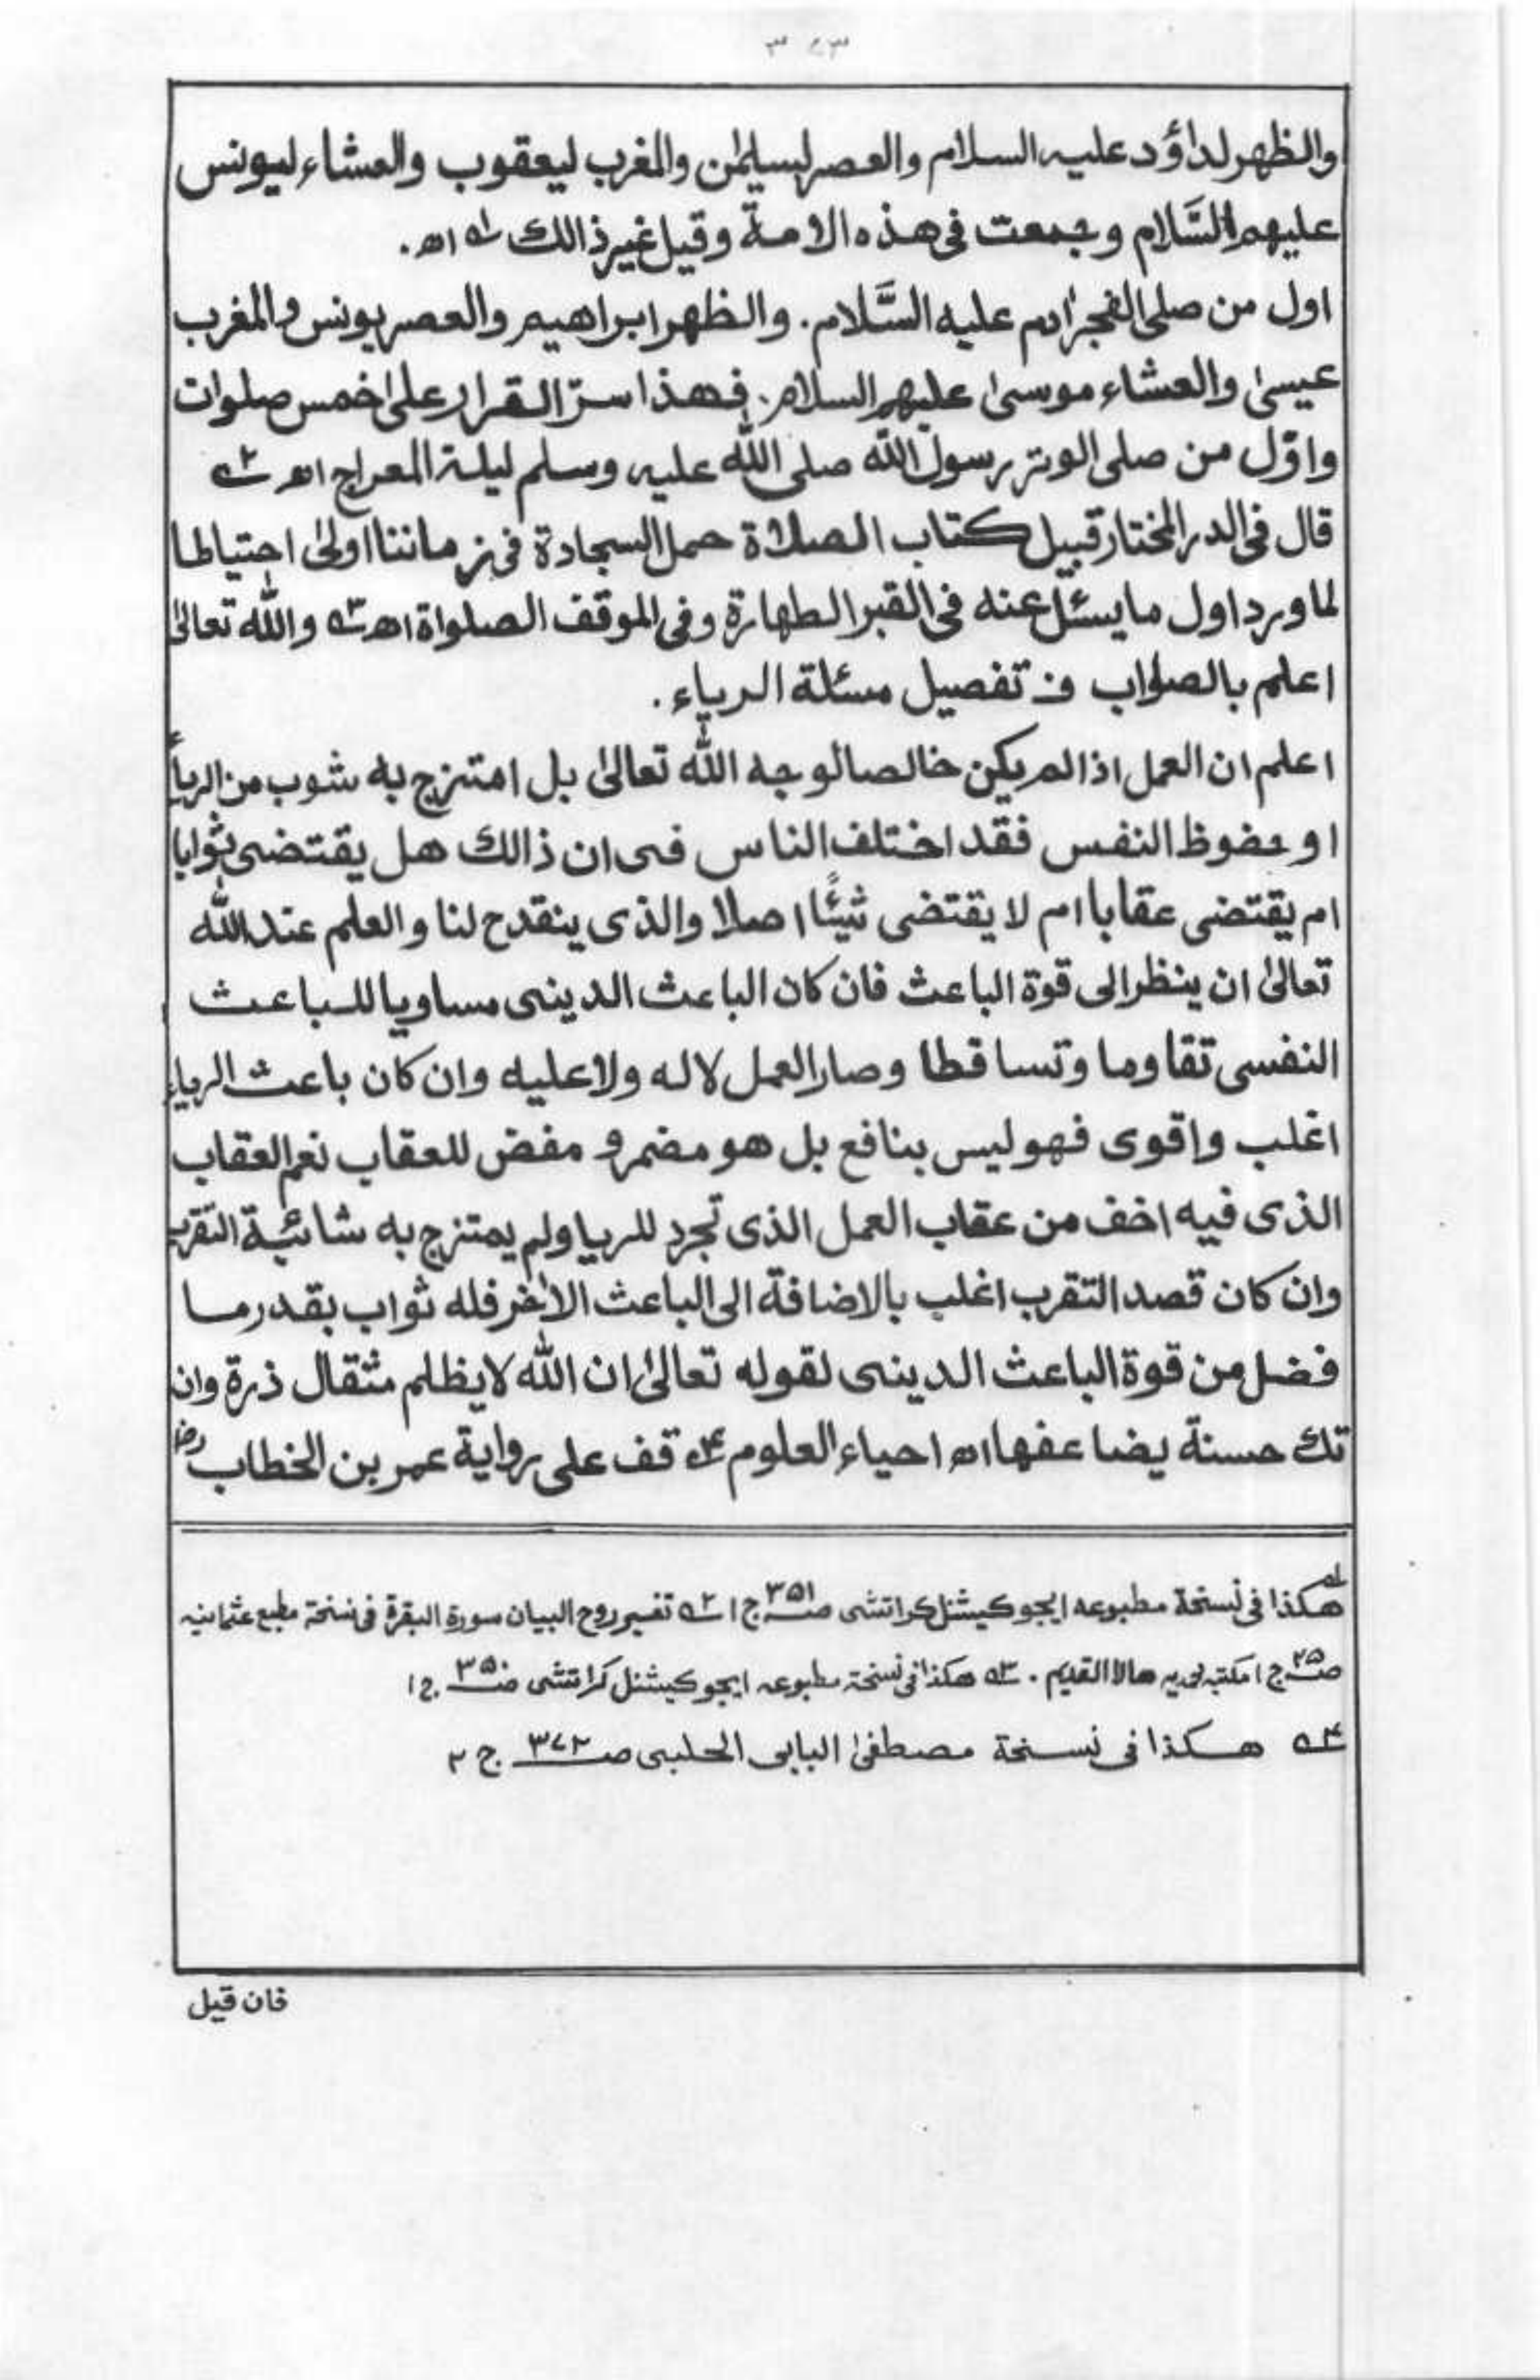 والظهر لداؤد عليه السلام والعصر لسليمٰن والمغرب ليعقوب والعشاء ليونس
عليهم السَّلام وجمعت فى هذه الامة وقيل غير ذالك ؁۱ اھ.
اول من صلى الفجر اٰدم عليه السَّلام. والظهر ابراهيم والعصر يونس والمغرب
عيسىٰ والعشاء موسىٰ عليهم السلام. فهذا سرّ القرار علىٰ خمس صلوات
واوّل من صلى الوتر رسول الله صلى الله عليه وسلم ليلة المعراج اھ ؁۲
قال فى الدر المختار قبيل كتاب الصلاة حمل السجادة فى زماننا اولىٰ احتياطا
لما ورد اول ما يسئل عنه فى القبر الطهارة وفى الموقف الصلواة اھ ؁۳ والله تعالىٰ
اعلم بالصواب ف تفصيل مسئلة الرياء.
اعلم ان العمل اذا لم يكن خالصا لوجه الله تعالىٰ بل امتزج به شوب من الرياء
او حفوظ النفس فقد اختلف الناس فى ان ذالك هل يقتضى ثوابا
ام يقتضى عقابا ام لا يقتضى شيئًا اصلا والذى ينقدح لنا والعلم عند الله
تعالىٰ ان ينظر الى قوة الباعث فان كان الباعث الدينى مساويا للباعث
النفسى تقاوما وتساقطا وصار العمل لا له ولا عليه وان كان باعث الرياء
اغلب واقوى فهو ليس بنافع بل هو مضر و مفض للعقاب نعم العقاب
الذى فيه اخف من عقاب العمل الذى تجرد للريا ولم يمتزج به شائبة التقرب
وان كان قصد التقرب اغلب بالاضافة الى الباعث الاٰخر فله ثواب بقدر ما
فضل من قوة الباعث الدينى لقوله تعالىٰ ان الله لا يظلم مثقال ذرة وان
تك حسنة يضاعفها اھ احياء العلوم ؁۴ قف على رواية عمر بن الخطاب رض
؁۱ هكذا فى نسخة مطبوعه ايجوكيشنل كراتشى صـ۳۵۱ ج۱ ؁۲ تفسير روح البيان سورة البقرة فى نسخة مطبع عثمانيه
صـ۲۵ ج۱ مكتبه هالا القديم. ؁۳ هكذا فى نسخة مطبوعه ايجوكيشنل كراتشى صـ۳۵۰ ج۱
؁۴ هكذا فى نسخة مصطفىٰ البابى الحلبى صـ۳۷۲ ج ۴
فان قيل